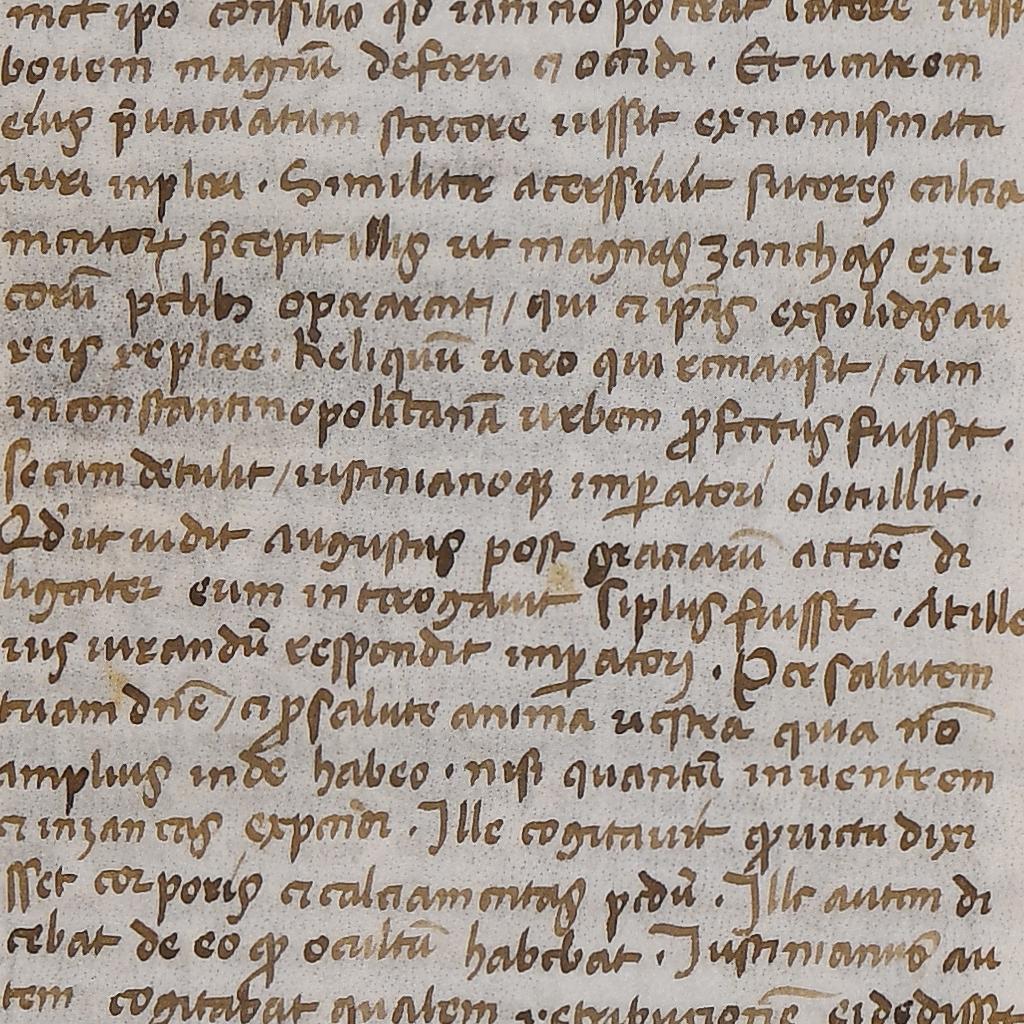 inct ipo consilio qd iam no poterat latere iussi
bouem magnū deferri ci occidi · Et uentrem
eius p̄uacuatum stercore iussit exnomismata
auri inpleri · Similiter acerssiuit sutores calcia
mentorꝝ p̄cepit illis ut magnas zanchas exir
corū pelibꝫ operarent / qui ci ipās exsolidis au
reis replere · Reliquū uero qui remansit / cum
inconstantinopolitanā urbem ꝓfectus fuisset ·
secum detulit / iustinianoqꝫ imꝑatori obtullit ·
Qd' ut uidit augustus post graciarū actōē di
ligenter eum interogauit siplus fuisset · At ille
ius iurandū respondit imꝑatori · Per salutem
tuam dnē / ci ꝓsalute anima uestra quia nō
amplius inde habeo · nisi quantū inuentrem
ci inzancas expendi · Ille cogitauit ꝙ uictu dixi
sset corporis ci calciamentas pedū · Ille autem di
cebat de eo ꝙ ocultū habebat · Iustinianus au
tem cogitabat qualem retribucionē eidedisset